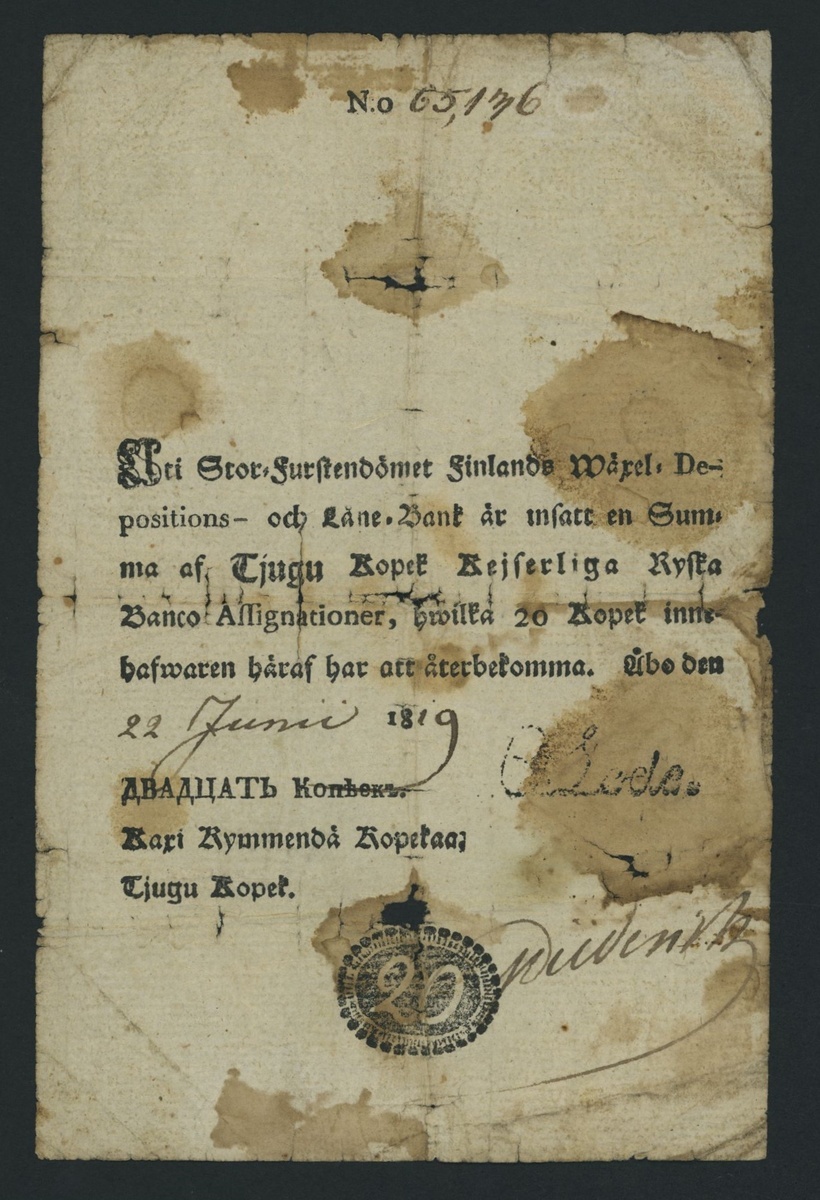 N:o 65,136
Uti Stor-Furstendömet Finlands Wäxel- De-
positions- och Låne-Bank är insatt en Sum-
ma af Tjugu Kopek Kejserliga Ryska
Banco Assignationer, hwilka 20 Kopek inne-
hafwaren häraf har att återbekomma. Åbo den
22 Junii 1819
ДВАДЦАТЬ Копѣекъ.
Kaxi Kymmendä Kopekaa;
Tjugu Kopek.
20